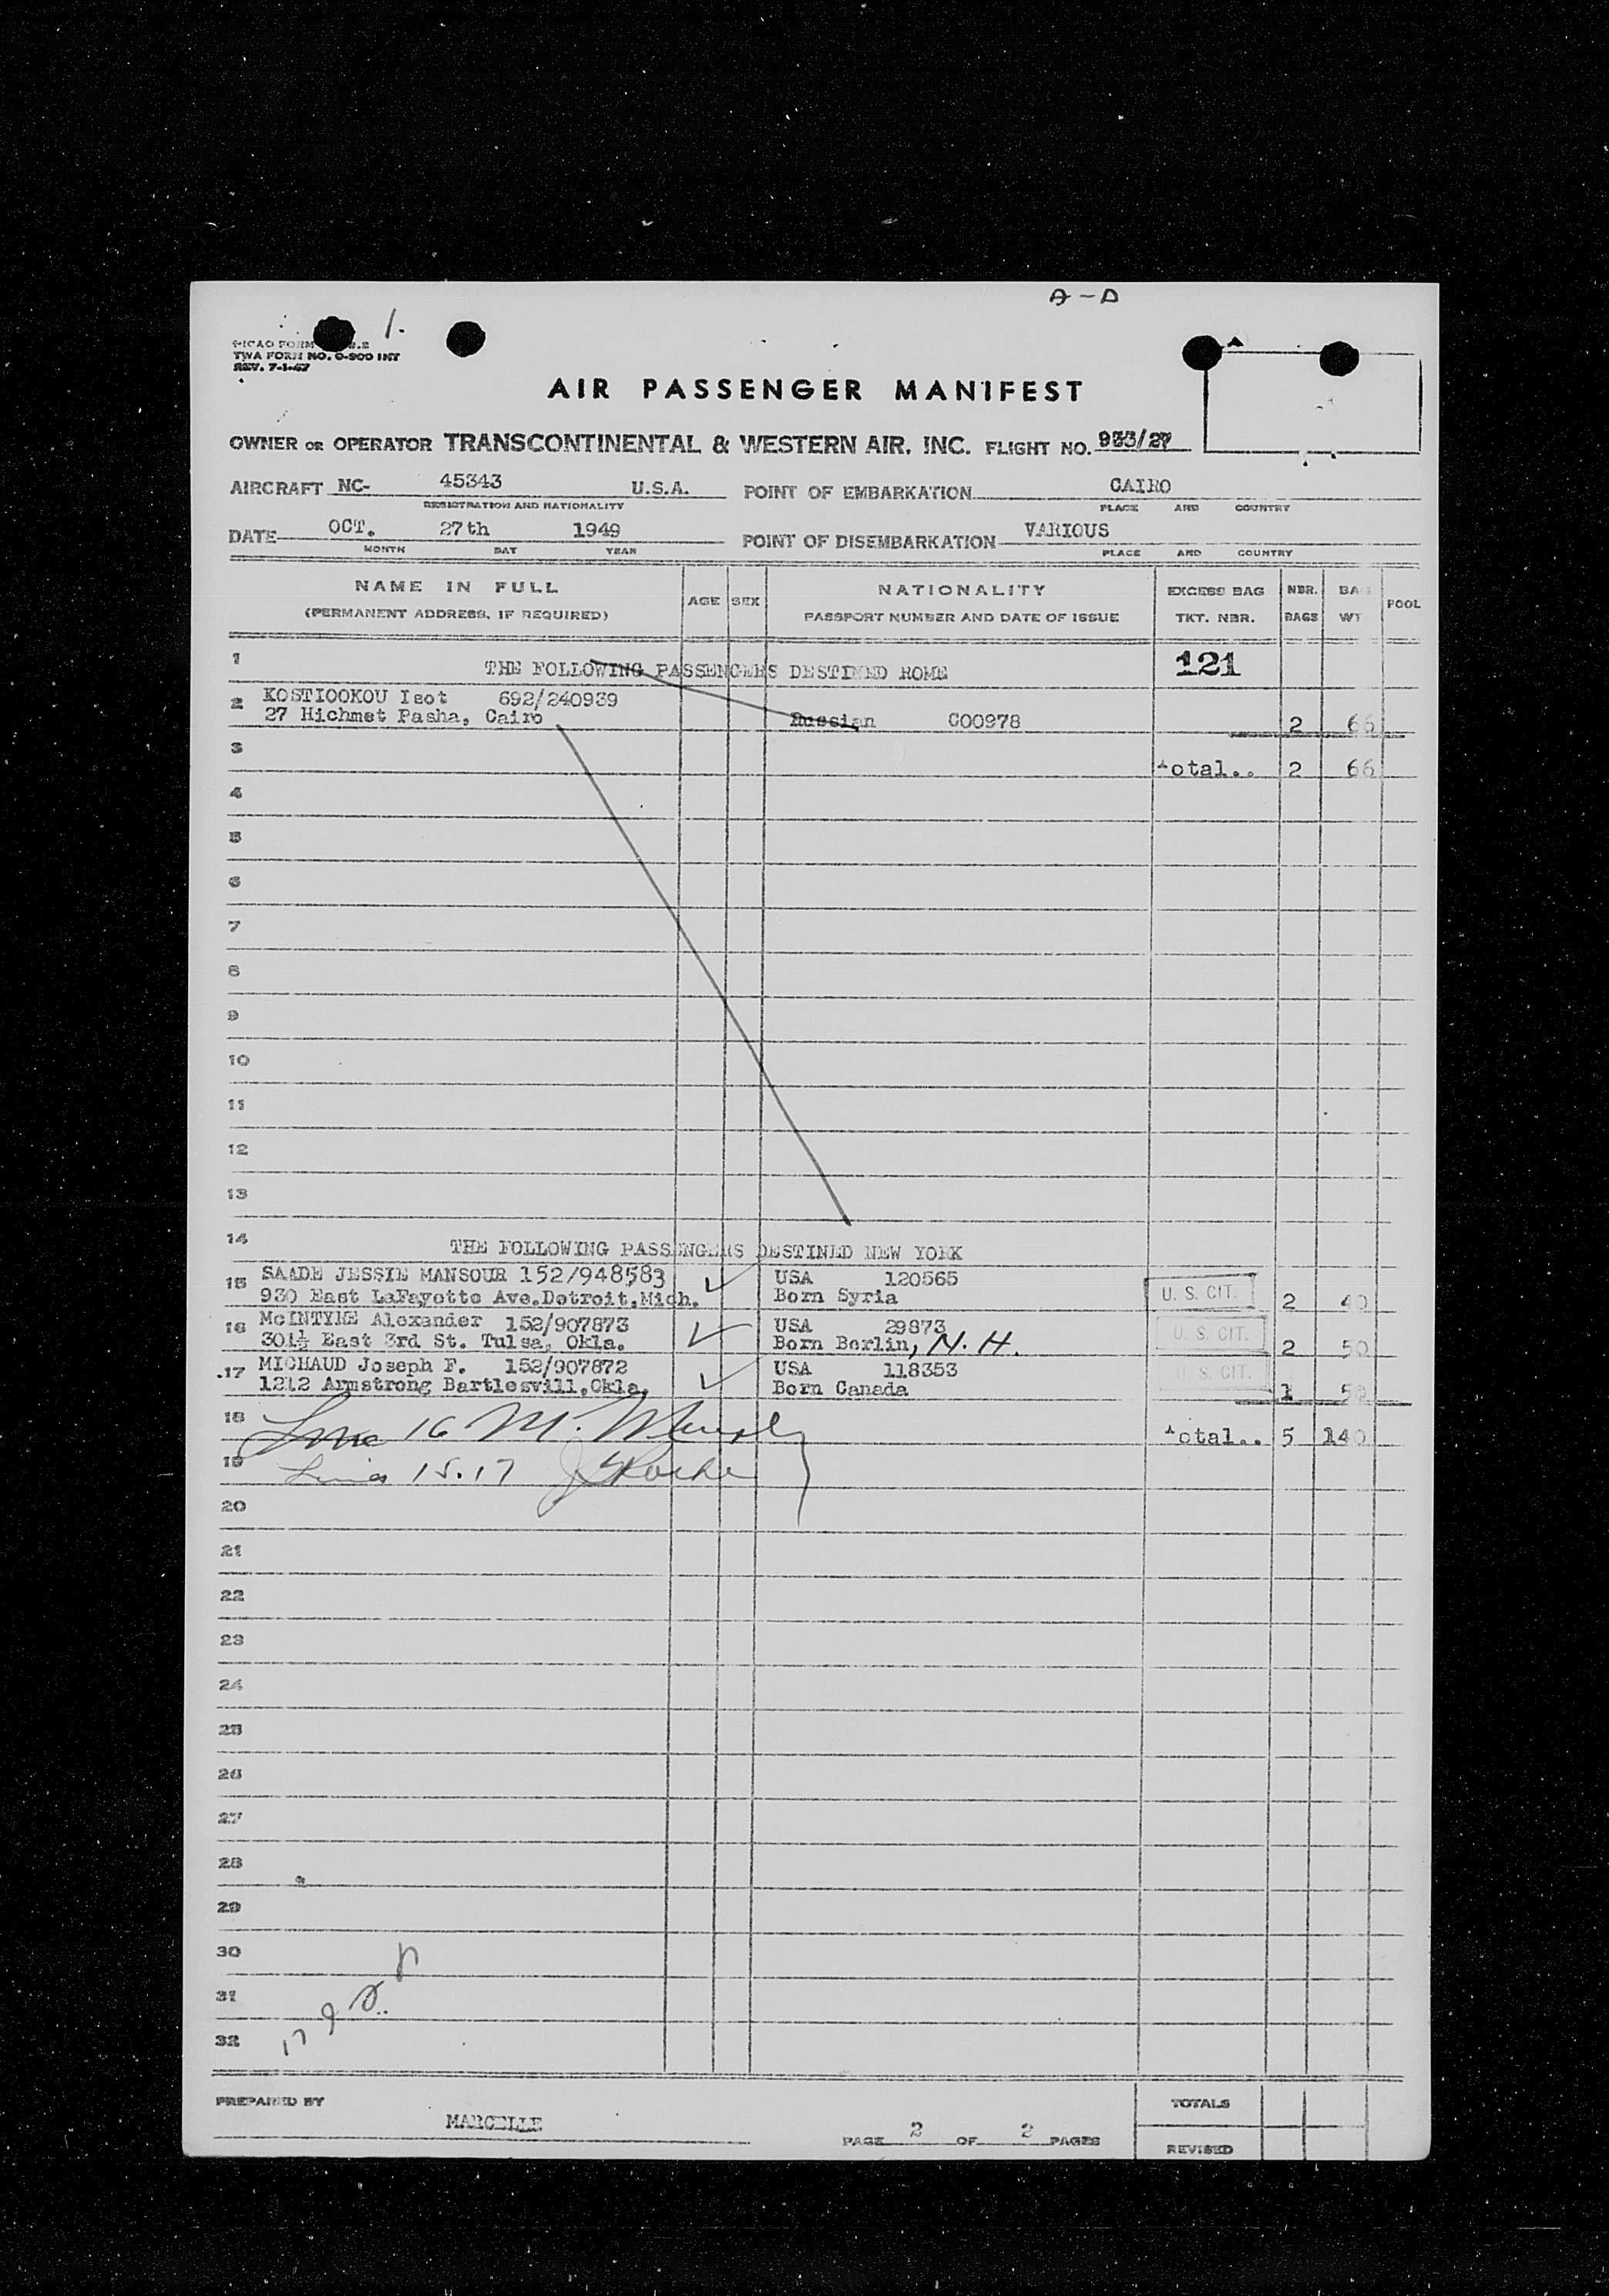 A-D
1.
TWA FORM NO. O-900 INT
REV. 7-1-47
AIR PASSENGER MANIFEST
OWNER OR OPERATOR TRANSCONTINENTAL & WESTERN AIR. INC. FLIGHT NO. 933/27
AIRCRAFT NC- 45343 U.S.A. POINT OF EMBARKATION CAIRO
REGISTRATION AND NATIONALITY PLACE AND COUNTRY
DATE OCT. 27th 1949 POINT OF DISEMBARKATION VARIOUS
MONTH DAY YEAR PLACE AND COUNTRY
NAME IN FULL AGE SEX NATIONALITY EXCESS BAG NBR. BAG POOL
(PERMANENT ADDRESS, IF REQUIRED) PASSPORT NUMBER AND DATE OF ISSUE TKT. NBR. BAGS WT
1 THE FOLLOWING PASSENGERS DESTINED ROME 121
2 KOSTIOOKOU Isot 692/240939
27 Hichmet Pasha, Cairo Russian C00978 2 66
3 Total.. 2 66
4
5
6
7
8
9
10
11
12
13
14 THE FOLLOWING PASSENGERS DESTINED NEW YORK
15 SAADE JESSIE MANSOUR 152/948583 USA 120565 U. S. CIT.
930 East LaFayette Ave.Detroit,Mich. Born Syria 2 40
16 McINTYRE Alexander 152/907873 USA 29873 U. S. CIT.
301½ East 3rd St. Tulsa, Okla. Born Berlin, N. H. 2 50
17 MICHAUD Joseph F. 152/907872 USA 118353 U. S. CIT.
1212 Armstrong Bartlesvill,Okla. Born Canada 1 50
18 Line 16 M. Total.. 5 140
19 Lines 15.17
20
21
22
23
24
25
26
27
28
29
30
31
32
PREPARED BY MARCELLE PAGE 2 OF 2 PAGES TOTALS
REVISED